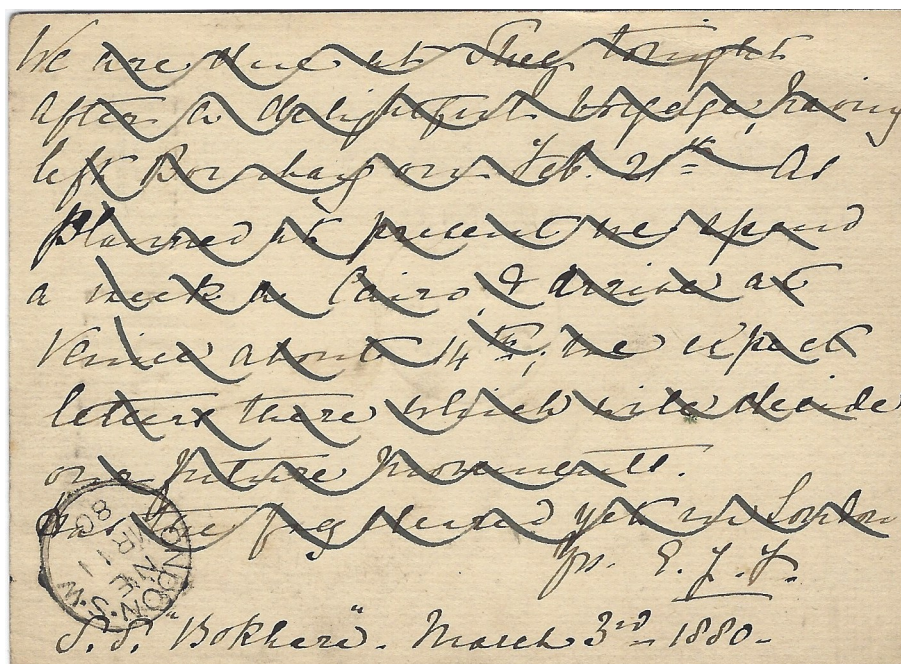 We are due at Suez tonight
after a delightful voyage, having
left Bombay on Feb. 21st As
planned at present we spend
a week at Cairo, & arrive at
Venice about 14th; we expect
letters there which will decide
our future movements.
Has the fog cleared yet in London
Yrs. E. J.
S.S. "Bokhara". March 3rd 1880-
LONDON. S.W.
NE
MR 11
80